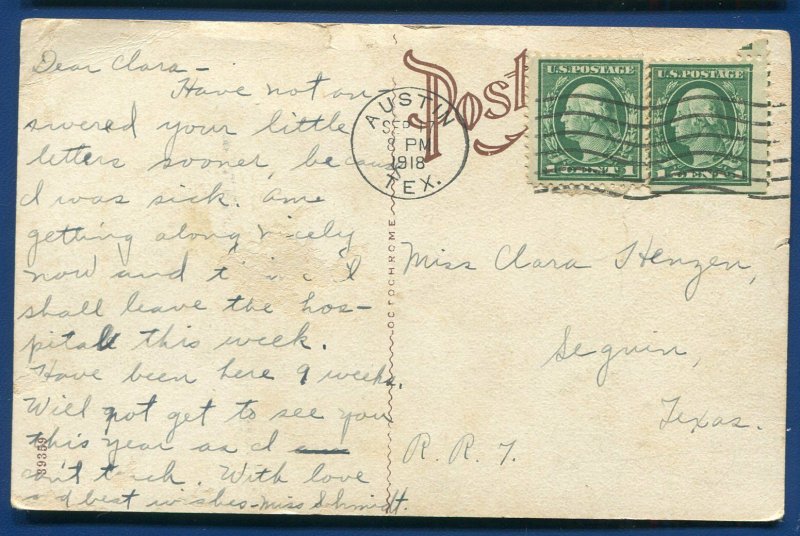 Dear Clara –
Have not an-
swered your little
letters sooner, because
I was sick. Am
getting along nicely
now and I
shall leave the hos-
pital this week.
Have been here 9 weeks.
Will not get to see you
this year as I
can't teach. With love
and best wishes – Miss Schmidt.
Post
AUSTIN
SEP
8 PM
1918
TEX.
U.S. POSTAGE
1 CENT 1
U.S. POSTAGE
1 CENT 1
OCTOCHROME
Miss Clara Henzen,
Seguin,
Texas.
R. R. 7.